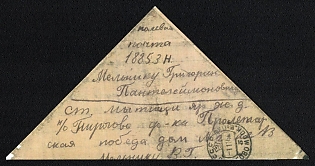 полевая
почта
18853Н
Мельнику Григорию
Пантелеймоновичу
ст. Мытищи яр. ж. д.
п/о Пирогово ф-ка Пролетар
ская победа дом №
Мельнику В.Г.